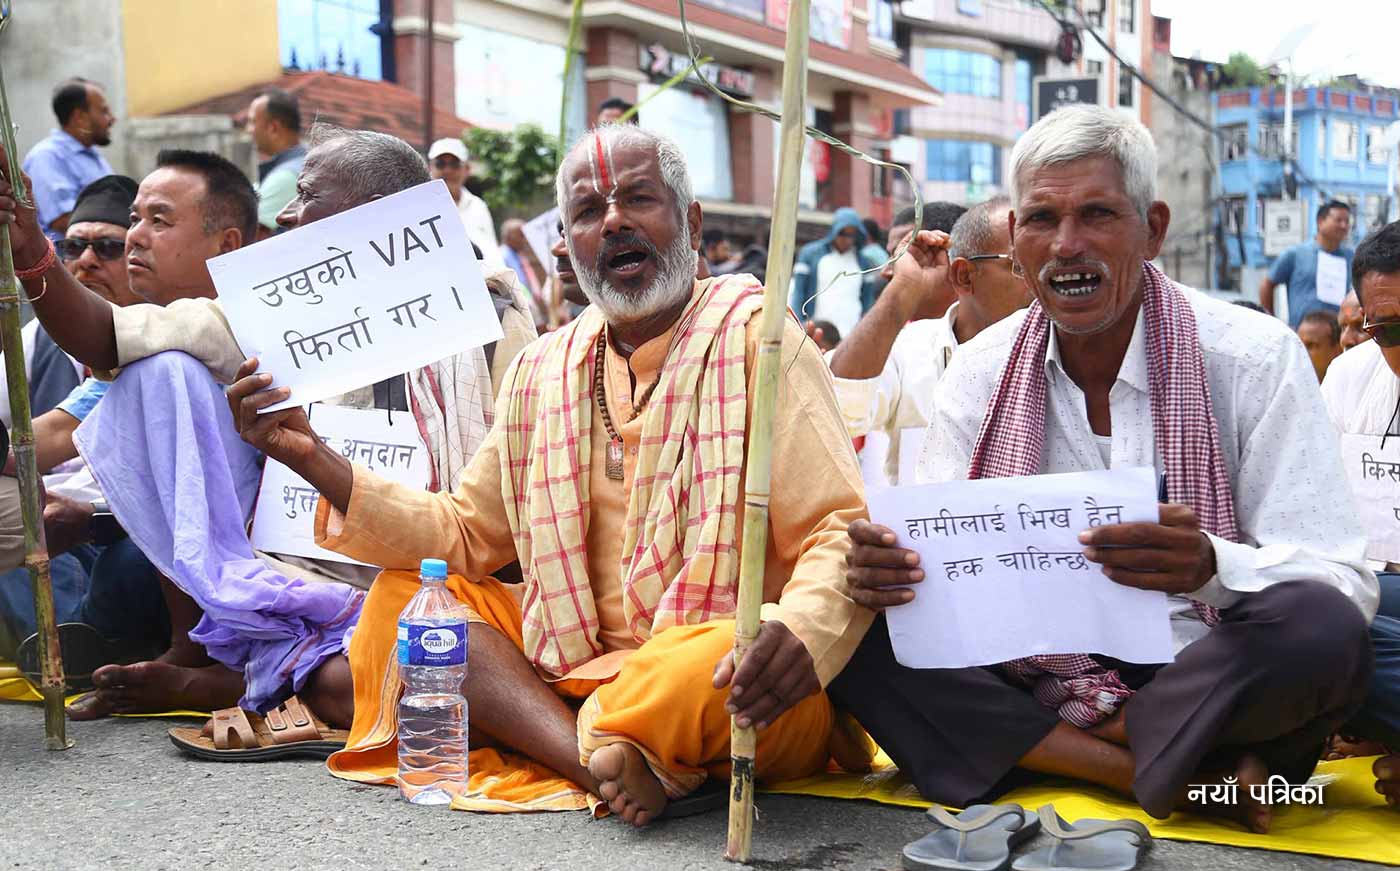 उखुको VAT
फिर्ता गर ।
अनुदान
हामीलाई भिख हैन
हक चाहिन्छ
aqua hill
नयाँ पत्रिका